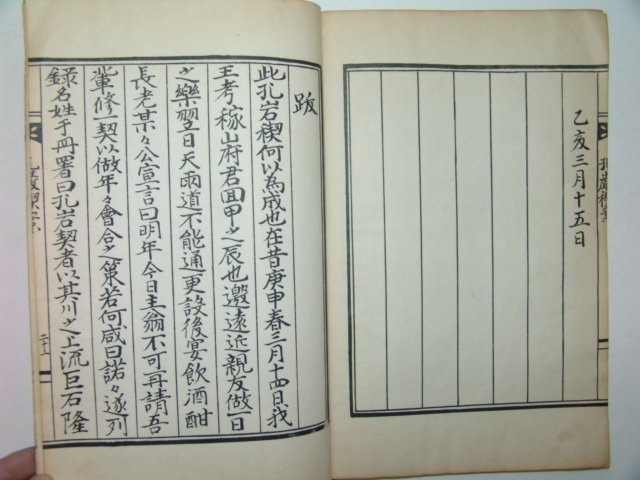 乙亥三月十五日
跋
此孔岩稧何以為成也在昔庚申春三月十四日我
王考稼山府君回甲之辰也邀遠近親友做一日
之樂翌日天雨道不能通更設後宴飮酒酣
長老某々公宣言曰明年今日主翁不可再請吾
輩修一契以做年々會合之策若何咸曰諾々遂列
錄名姓于丹署曰孔岩契者以其川之上流巨石隆